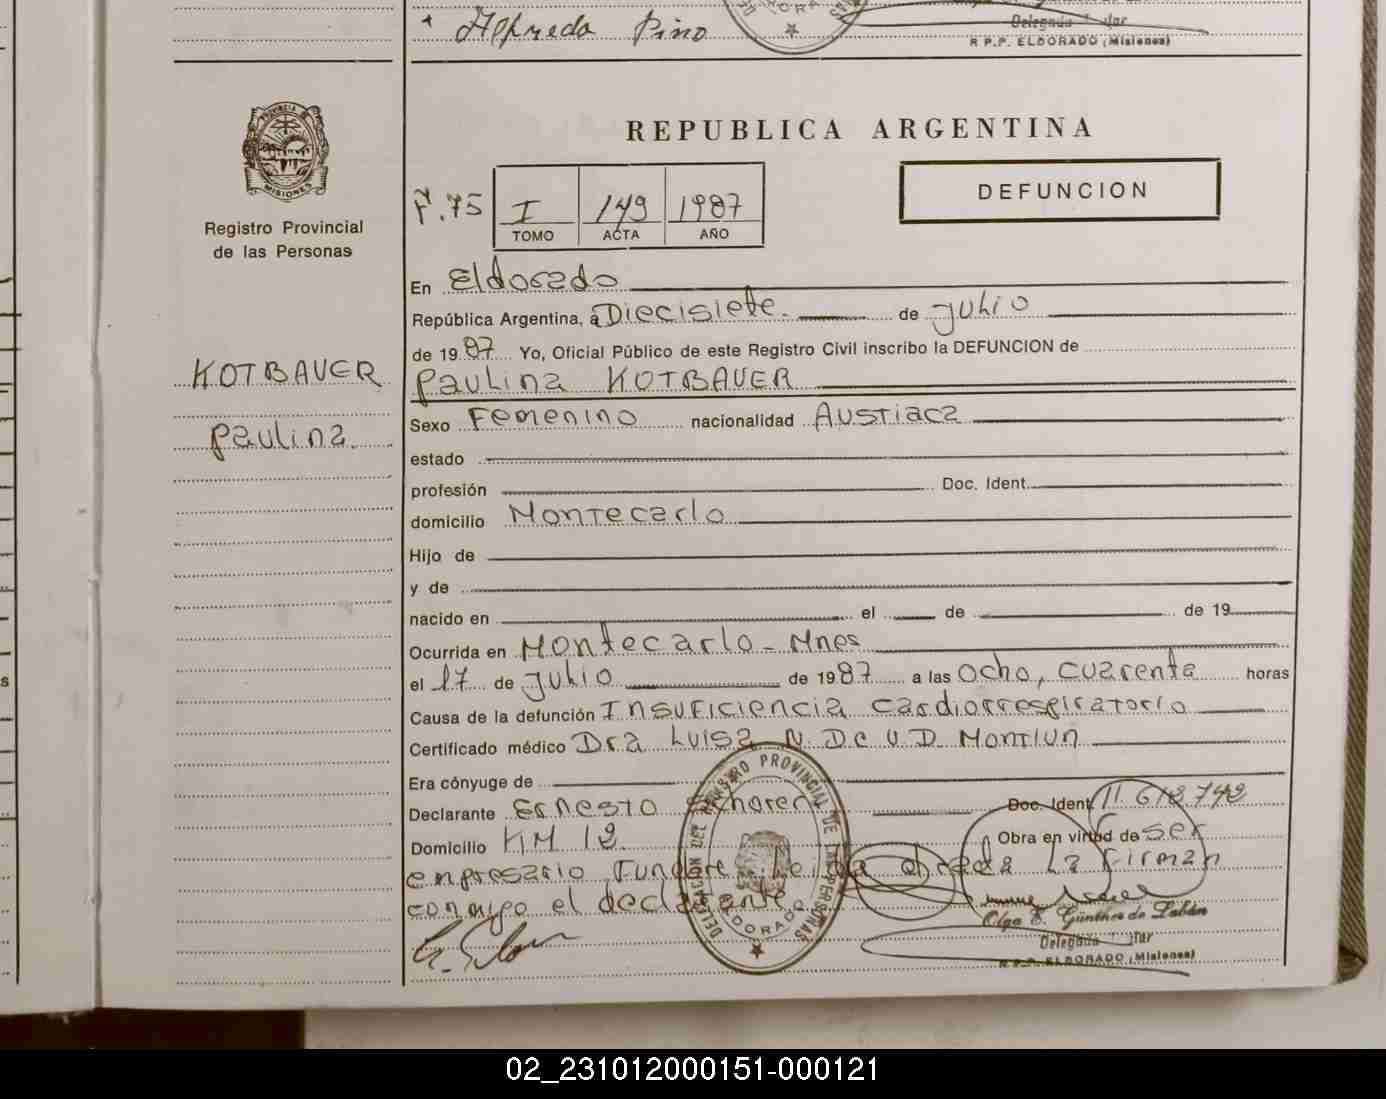 * Alfredo Pino
Delegada Titular
R.P.P. ELDORADO (Misiones)
PROVINCIA DE
MISIONES
Registro Provincial
de las Personas
REPUBLICA ARGENTINA
F. 75 I 149 1987
TOMO ACTA AÑO
DEFUNCION
En Eldorado
República Argentina, a Diecisiete. de julio
de 1987 Yo, Oficial Público de este Registro Civil inscribo la DEFUNCION de
KOTBAUER
Paulina KOTBAUER
Paulina
Sexo Femenino nacionalidad Austiaca
estado
profesión Doc. Ident.
domicilio Montecarlo
Hijo de
y de
nacido en el de de 19
Ocurrida en Montecarlo - Mnes
el 17 de julio de 1987 a las ocho, cuarenta horas
Causa de la defunción Insuficiencia cardiorrespiratorio
Certificado médico Dra Luisa N. De V.D. Montiun
Era cónyuge de
Declarante Ernesto Doc. Ident 11 612 742
Domicilio KM 12 Obra en virtud de ser
empresario La firman
conmigo el declarante
DELEGACION DEL REGISTRO PROVINCIAL DE LAS PERSONAS
ELDORADO
Olga E. Günther de Labán
Delegada Titular
R.P.P. ELDORADO (Misiones)
02_231012000151-000121